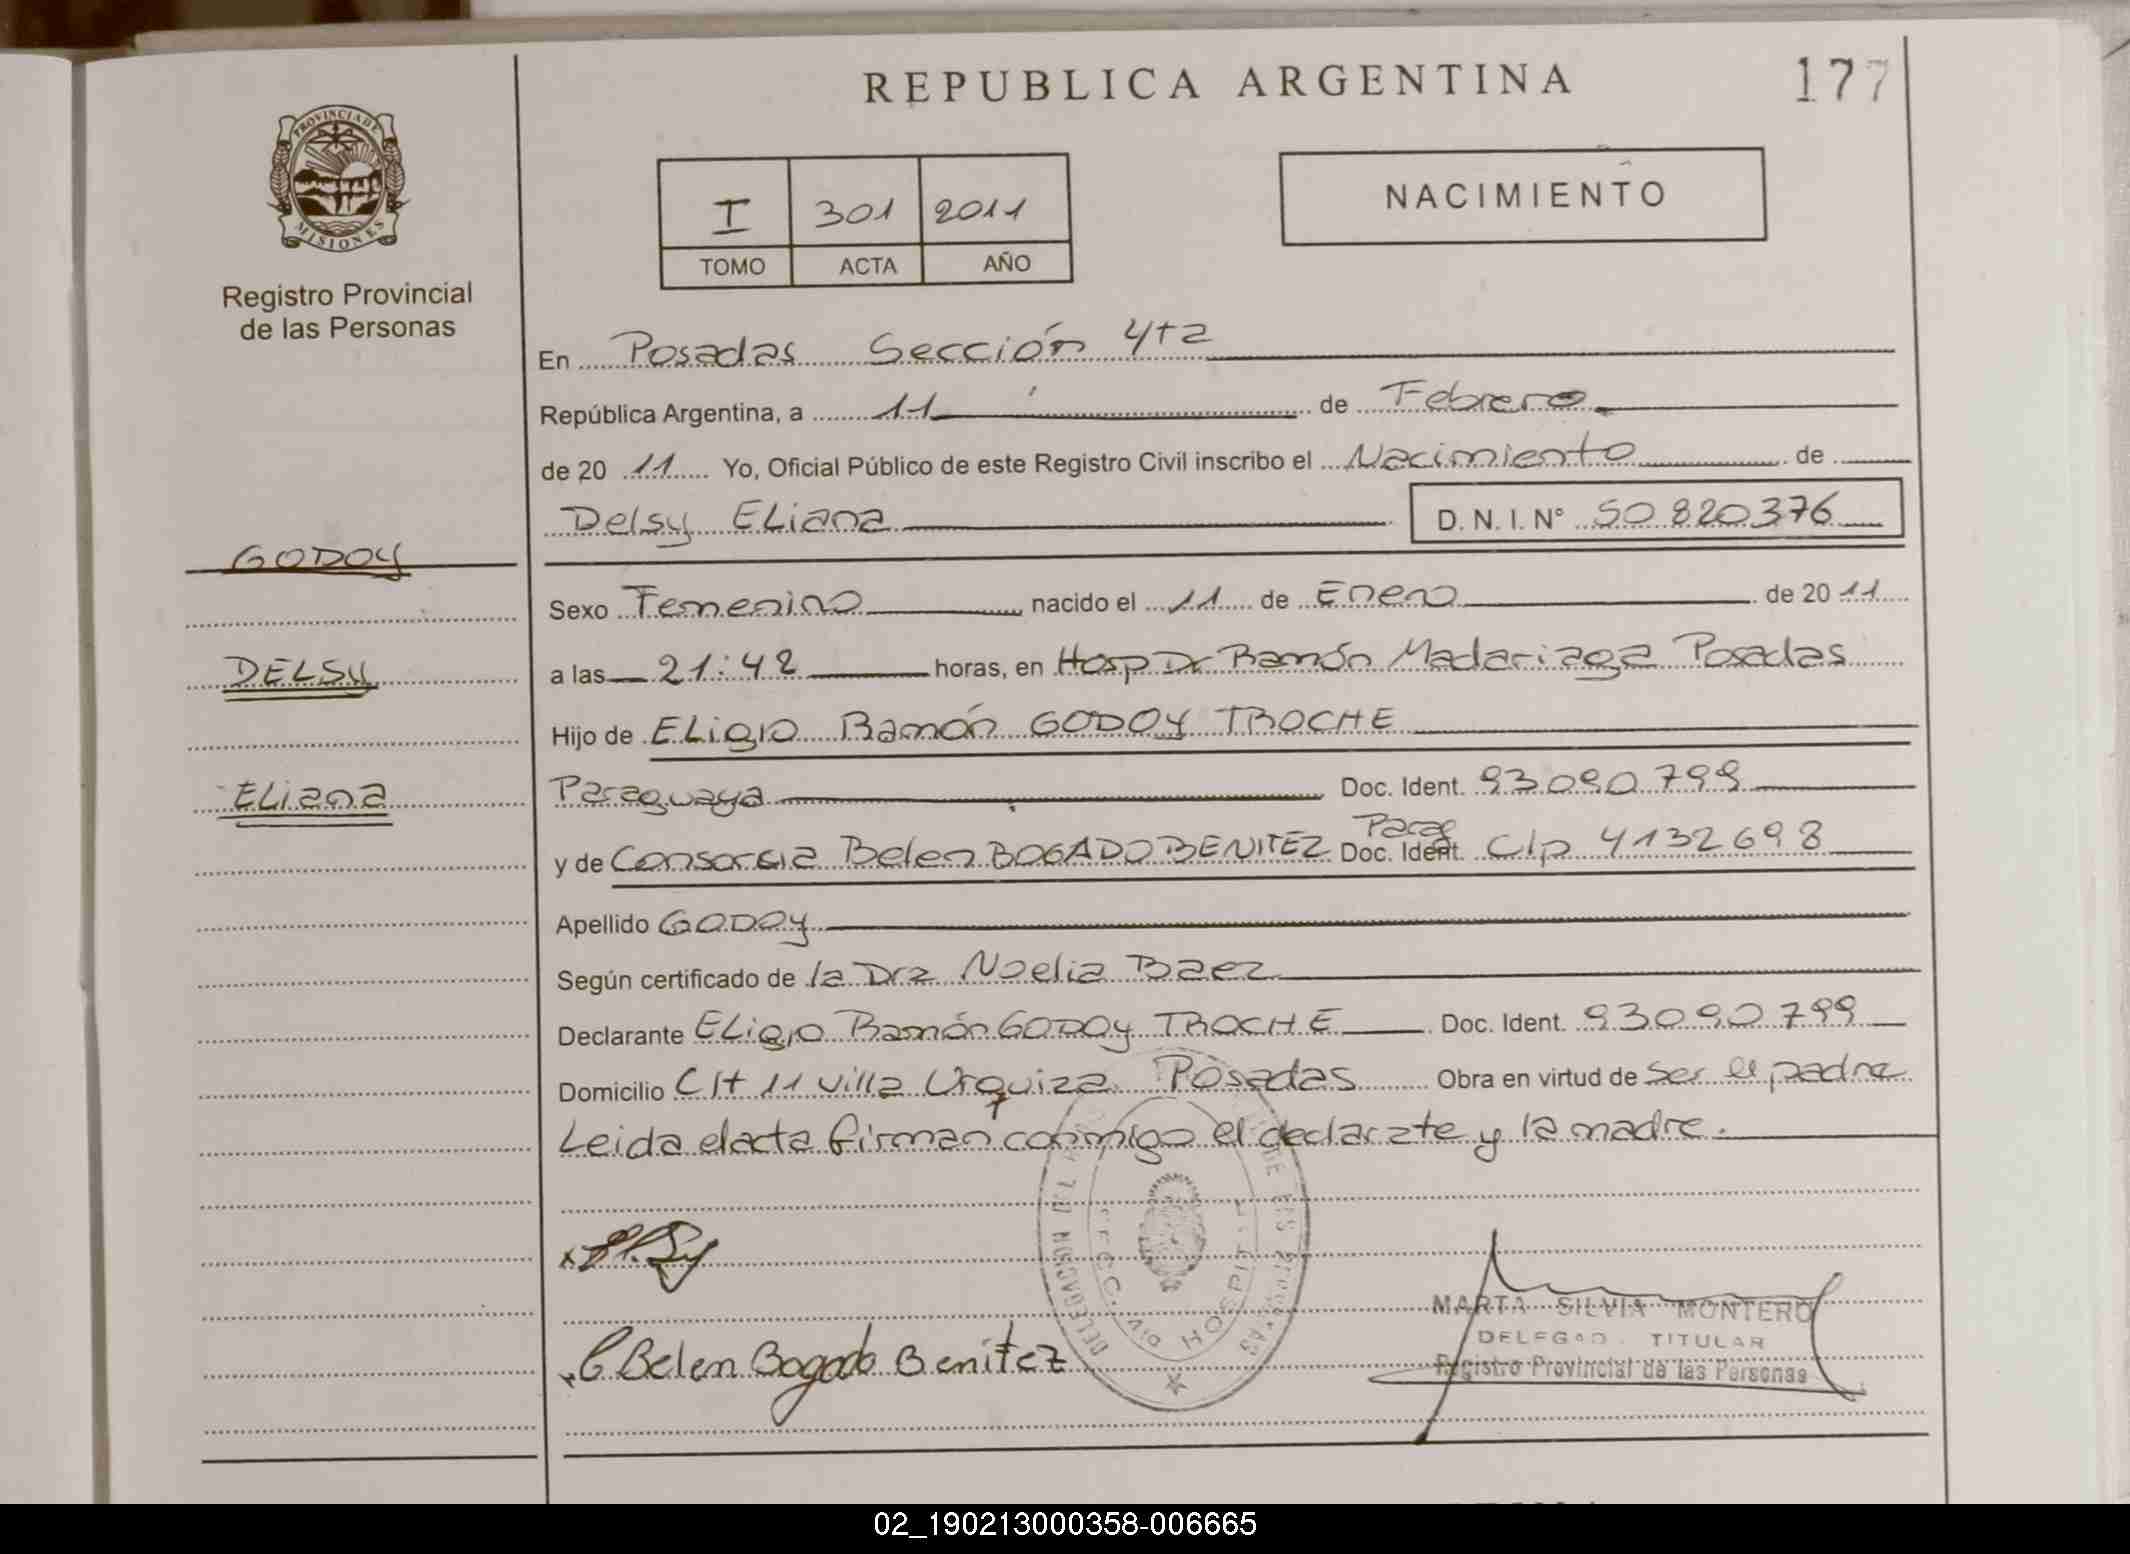 REPUBLICA ARGENTINA
177
PROVINCIA DE
MISIONES
Registro Provincial
de las Personas
I 301 2011
TOMO ACTA AÑO
NACIMIENTO
En Posadas Sección 4ta
República Argentina, a 11 de Febrero
de 20 11 Yo, Oficial Público de este Registro Civil inscribo el Nacimiento de
Delsy ELiana D. N. I. N° 50 820376
GODOY
DELSY
ELiana
Sexo Femenino nacido el 11 de Enero de 20 11
a las 21:42 horas, en Hosp Dr Ramón Madariaga Posadas
Hijo de ELigio Ramón GODOY TROCHE
Paraguaya Doc. Ident. 93090799
y de Consorcia Belen BOGADO BENITEZ Parag Doc. Ident. CIp 4132698
Apellido GODOY
Según certificado de la Dra Noelia Baez
Declarante ELigio Ramón GODOY TROCHE Doc. Ident. 93090799
Domicilio CH 11 Villa Urquiza Posadas Obra en virtud de Ser el padre
Leida el acta firman conmigo el declarate y la madre.
x
x C Belen Bogado Benitez
DELEGACION
SECC.
DIV HOSPITAL
DE LAS PERSONAS
MARTA SILVIA MONTERO
DELEGAD. TITULAR
Registro Provincial de las Personas
02_190213000358-006665